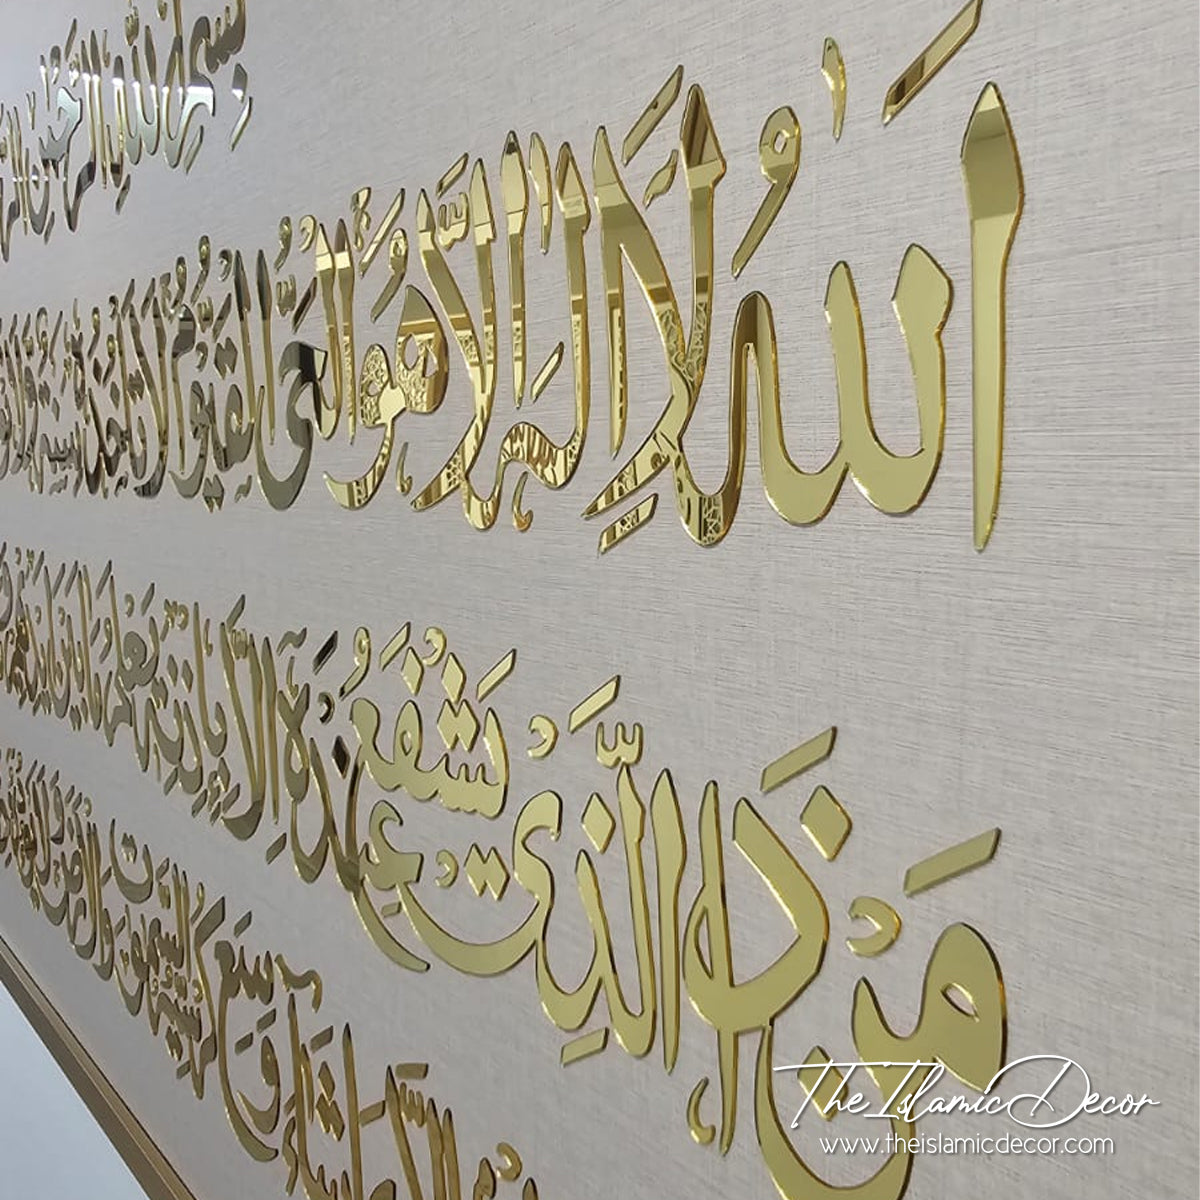 بِسْمِ اللّٰهِ الرَّحْمٰنِ
اَللّٰهُ لَا إِلٰهَ إِلَّا هُوَ الْحَيُّ الْقَيُّومُ لَا تَأْخُذُهُ سِنَةٌ وَلَا
مَنْ ذَا الَّذِي يَشْفَعُ عِنْدَهُ إِلَّا بِإِذْنِهِ يَعْلَمُ مَا بَيْنَ أَيْدِيهِمْ
شَاءَ وَسِعَ كُرْسِيُّهُ السَّمٰوٰتِ وَالْأَرْضَ وَلَا
The Islamic Decor
www.theislamicdecor.com